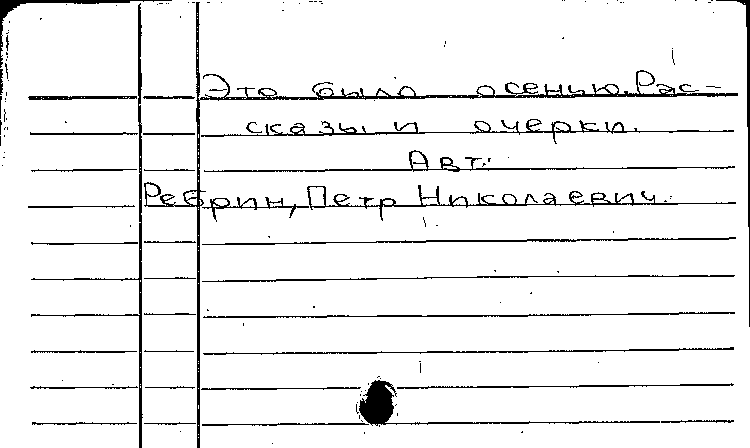 Это было осенью. Рас-
сказы и очерки.
Авт.:
Ребрин, Петр Николаевич.